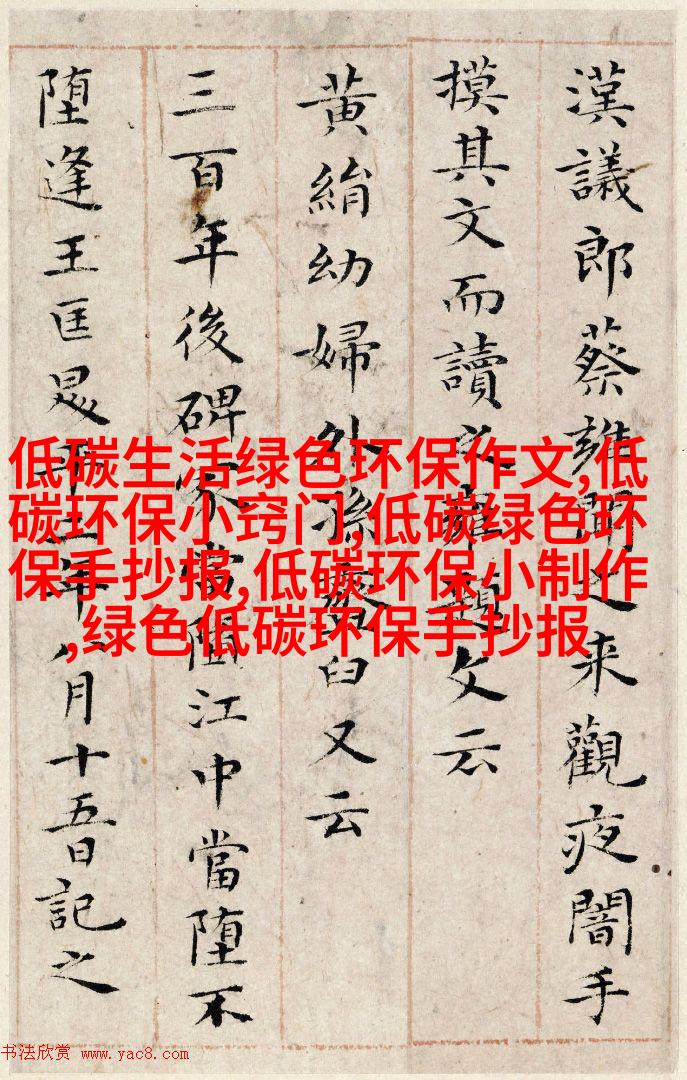 漢議郎蔡雍聞之来觀夜闇手
摸其文而讀之雍題文云
黄絹幼婦外孫臼又云
三百年後碑冢當墮江中當堕不
堕逢王匡昇平二年八月十五日記之
低碳生活绿色环保作文,低
碳环保小窍门,低碳绿色环
保手抄报,低碳环保小制作
,绿色低碳环保手抄报
书法欣赏 www.yac8.com